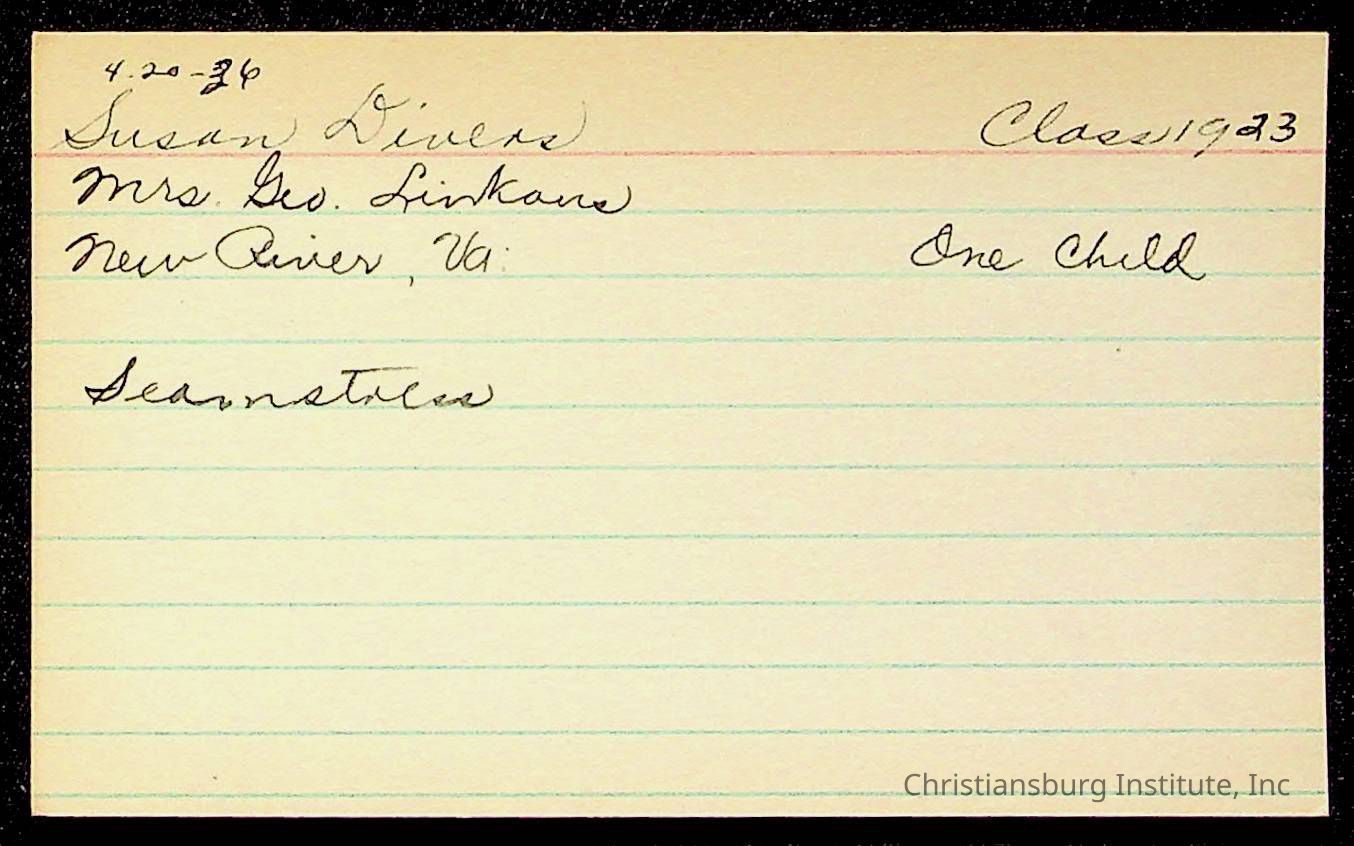 4.20-36
Susan Divers Class 1923
Mrs. Geo. Linkous
New River, Va. One Child
Seamstress
Christiansburg Institute, Inc